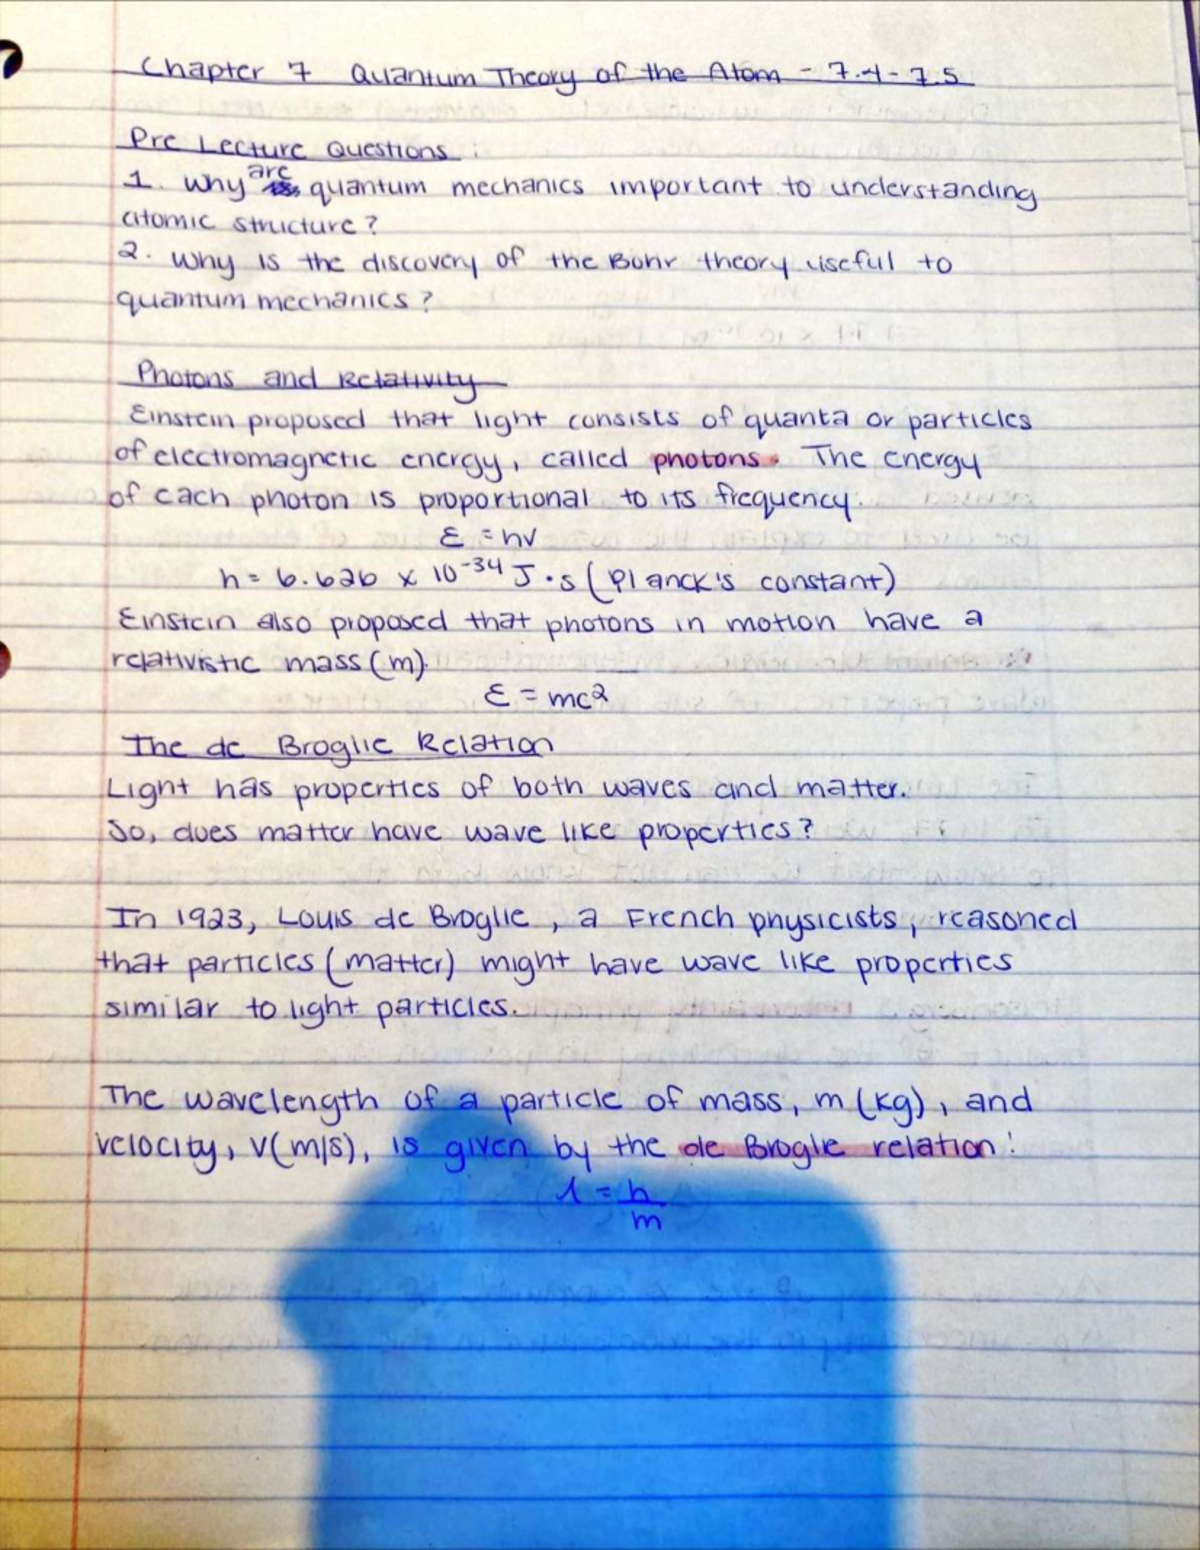 Chapter 7 Quantum Theory of the Atom - 7.4-7.5
Pre Lecture Questions
1. Why are quantum mechanics important to understanding
atomic structure?
2. Why is the discovery of the Bohr theory useful to
quantum mechanics?
Photons and Relativity
Einstein proposed that light consists of quanta or particles
of electromagnetic energy, called photons. The energy
of each photon is proportional to its frequency.
E = hv
h = 6.626 x 10⁻³⁴ J·s (Planck's constant)
Einstein also proposed that photons in motion have a
relativistic mass (m).
E = mc²
The de Broglie Relation
Light has properties of both waves and matter.
So, does matter have wave like properties?
In 1923, Louis de Broglie, a French physicists, reasoned
that particles (matter) might have wave like properties
similar to light particles.
The wavelength of a particle of mass, m (kg), and
velocity, v(m/s), is given by the de Broglie relation:
λ = h
m